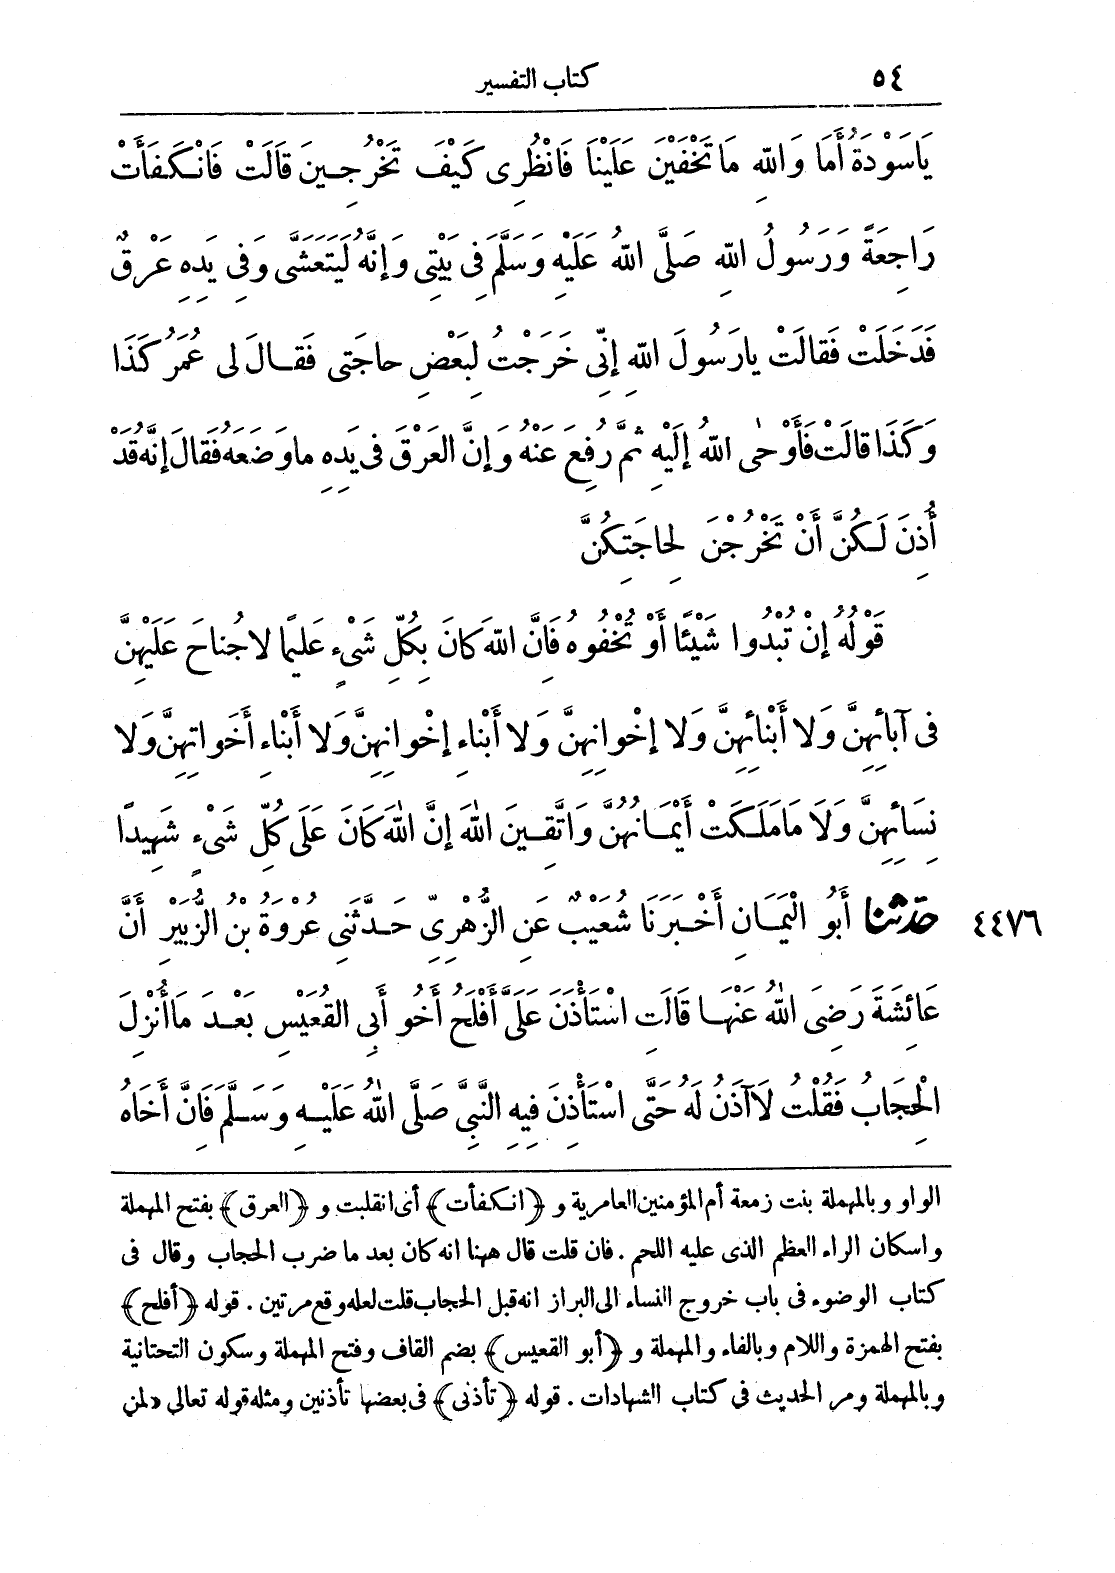 ٥٤ كتاب التفسير
يَاسَوْدَةُ أَمَا وَاللّٰهِ مَا تَخْفَيْنَ عَلَيْنَا فَانْظُرِى كَيْفَ تَخْرُجِينَ قَالَتْ فَانْكَفَأَتْ
رَاجِعَةً وَرَسُولُ اللّٰهِ صَلَّى اللّٰهُ عَلَيْهِ وَسَلَّمَ فِى بَيْتِى وَإِنَّهُ لَيَتَعَشَّى وَفِى يَدِهِ عَرْقٌ
فَدَخَلَتْ فَقَالَتْ يارَسُولَ اللّٰهِ إِنِّى خَرَجْتُ لِبَعْضِ حاجَتِى فَقَالَ لى عُمَرُ كَذَا
وَكَذَا قالَتْ فَأَوْحٰى اللّٰهُ إِلَيْهِ ثُمَّ رُفِعَ عَنْهُ وَإِنَّ العَرْقَ فى يَدِهِ ماوَضَعَهُ فَقالَ إِنَّهُ قَدْ
أُذِنَ لَكُنَّ أَنْ تَخْرُجْنَ لِحاجَتِكُنَّ
قَوْلُهُ إِنْ تُبْدُوا شَيْئًا أَوْ تُخْفُوهُ فَانَّ اللّٰهَ كانَ بِكُلِّ شَىْءٍ عَلِيمًا لاجُناحَ عَلَيْهِنَّ
فى آبائِهِنَّ وَلا أَبْنائِهِنَّ وَلا إِخْوانِهِنَّ وَلا أَبْناءِ إِخْوانِهِنَّ وَلا أَبْناءِ أَخَواتِهِنَّ وَلا
نِسَائِهِنَّ وَلَا مَامَلَكَتْ أَيْمَانُهُنَّ وَاتَّقِينَ اللّٰهَ إِنَّ اللّٰهَ كَانَ عَلَى كُلِّ شَىْءٍ شَهِيدًا
٤٤٧٦ حَدَّثَنَا أَبُو الْيَمَانِ أَخْبَرَنَا شُعَيْبٌ عَنِ الزُّهْرِىِّ حَدَّثَنِى عُرْوَةُ بْنُ الزُّبَيْرِ أَنَّ
عَائِشَةَ رَضِىَ اللّٰهُ عَنْهَا قَالَتِ اسْتَأْذَنَ عَلَىَّ أَفْلَحُ أَخُو أَبِى القُعَيْسِ بَعْدَ مَا أُنْزِلَ
الْحِجَابُ فَقُلْتُ لَا آذَنُ لَهُ حَتَّى اسْتَأْذِنَ فِيهِ النَّبِىَّ صَلَّى اللّٰهُ عَلَيْهِ وَسَلَّمَ فَانَّ أَخَاهُ
الواو وبالمهملة بنت زمعة أم المؤمنين العامرية و ﴿انكفأت﴾ أى انقلبت و ﴿العرق﴾ بفتح المهملة
واسكان الراء العظم الذى عليه اللحم . فان قلت قال ههنا انه كان بعد ما ضرب الحجاب وقال فى
كتاب الوضوء فى باب خروج النساء الى البراز انه قبل الحجاب قلت لعله وقع مرتين . قوله ﴿أفلح﴾
بفتح الهمزة واللام وبالفاء والمهملة و ﴿أبو القعيس﴾ بضم القاف وفتح المهملة وسكون التحتانية
وبالمهملة ومر الحديث فى كتاب الشهادات . قوله ﴿تأذنى﴾ فى بعضها تأذنين ومثله قوله تعالى «لمن